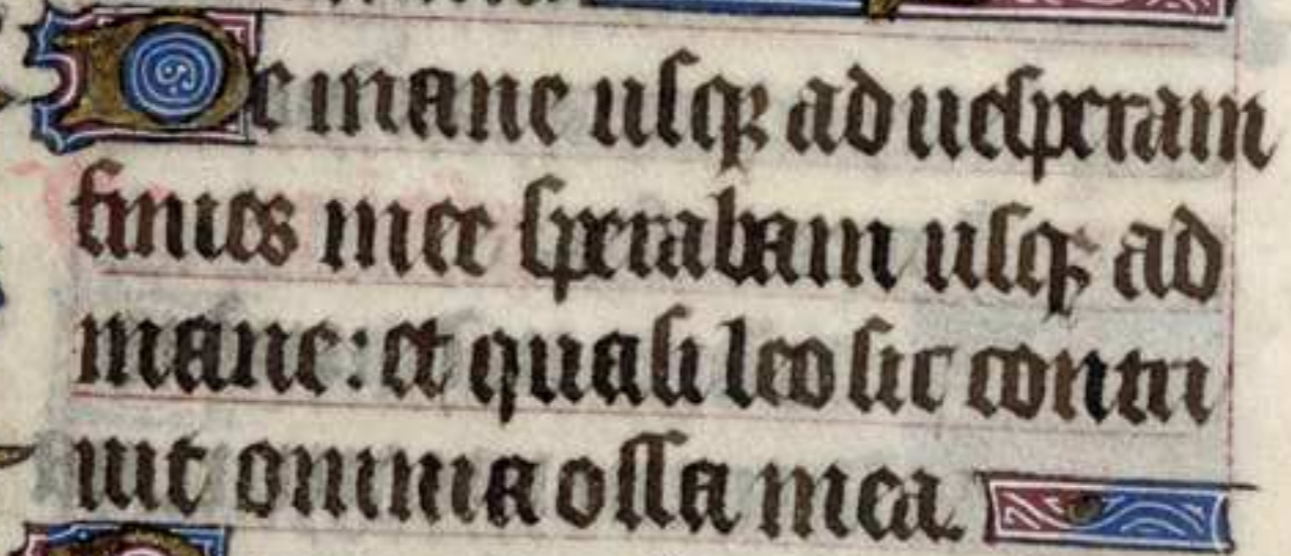 De mane usqꝫ ad uesperam
finies me sperabam usqꝫ ad
mane: et quasi leo sic contri
uit omnia ossa mea.